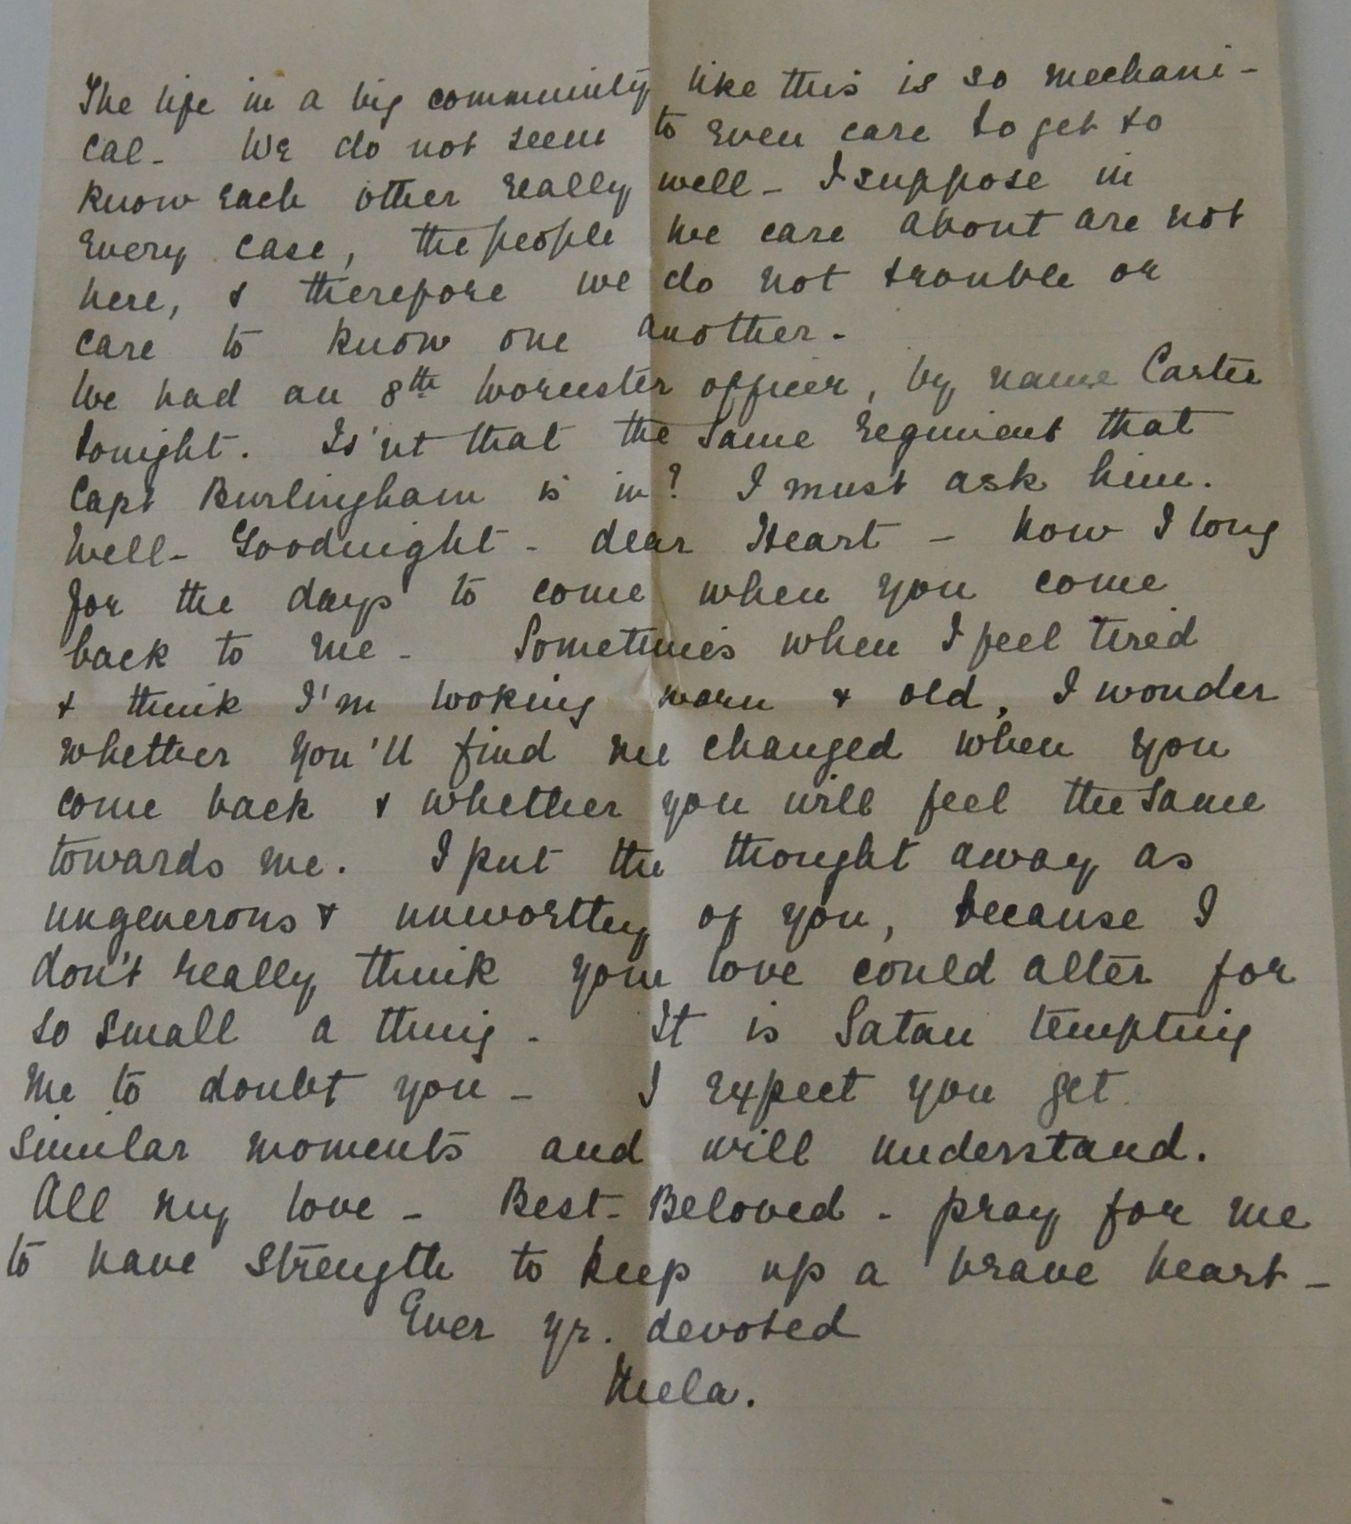 The life in a big community like this is so mechani-
cal - We do not seem to even care to get to
know each other really well - I suppose in
every case, the people we care about are not
here, & therefore we do not trouble or
care to know one another -
We had an 8th Worcester officer, by name Carter
tonight. Is'nt that the same regiment that
Capt Burlingham is in? I must ask him.
Well - Goodnight - dear Heart - how I long
for the days to come when you come
back to me - Sometimes when I feel tired
& think I'm looking worn & old, I wonder
whether you'll find me changed when you
come back & whether you will feel the same
towards me. I put the thought away as
ungenerous & unworthy of you, because I
don't really think your love could alter for
so small a thing - It is Satan tempting
me to doubt you - I expect you get
similar moments and will understand.
All my love - Best-Beloved - pray for me
to have strength to keep up a brave heart -
Ever yr. devoted